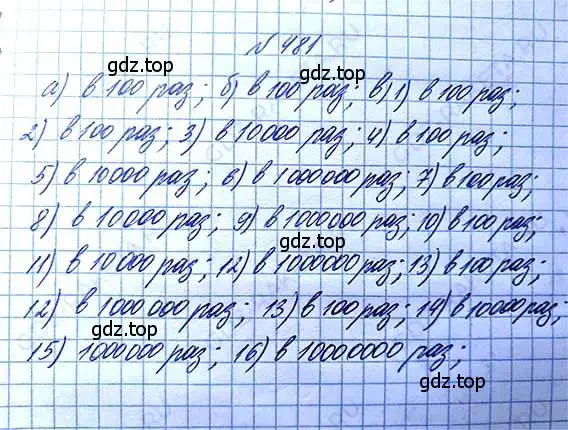 № 481
gdz.top gdz.top
а) в 100 раз; б) в 100 раз; в) 1) в 100 раз;
2) в 100 раз; 3) в 10000 раз; 4) в 100 раз;
5) в 10000 раз; 6) в 1000000 раз; 7) в 100 раз;
8) в 10000 раз; 9) в 1000000 раз; 10) в 100 раз;
gdz.top
11) в 10000 раз; 12) в 1000000 раз; 13) в 100 раз;
12) в 1000 000 раз; 13) в 100 раз; 14) в 10000 раз;
gdz.top
15) 1000000 раз; 16) в 10000000 раз;
gdz.top